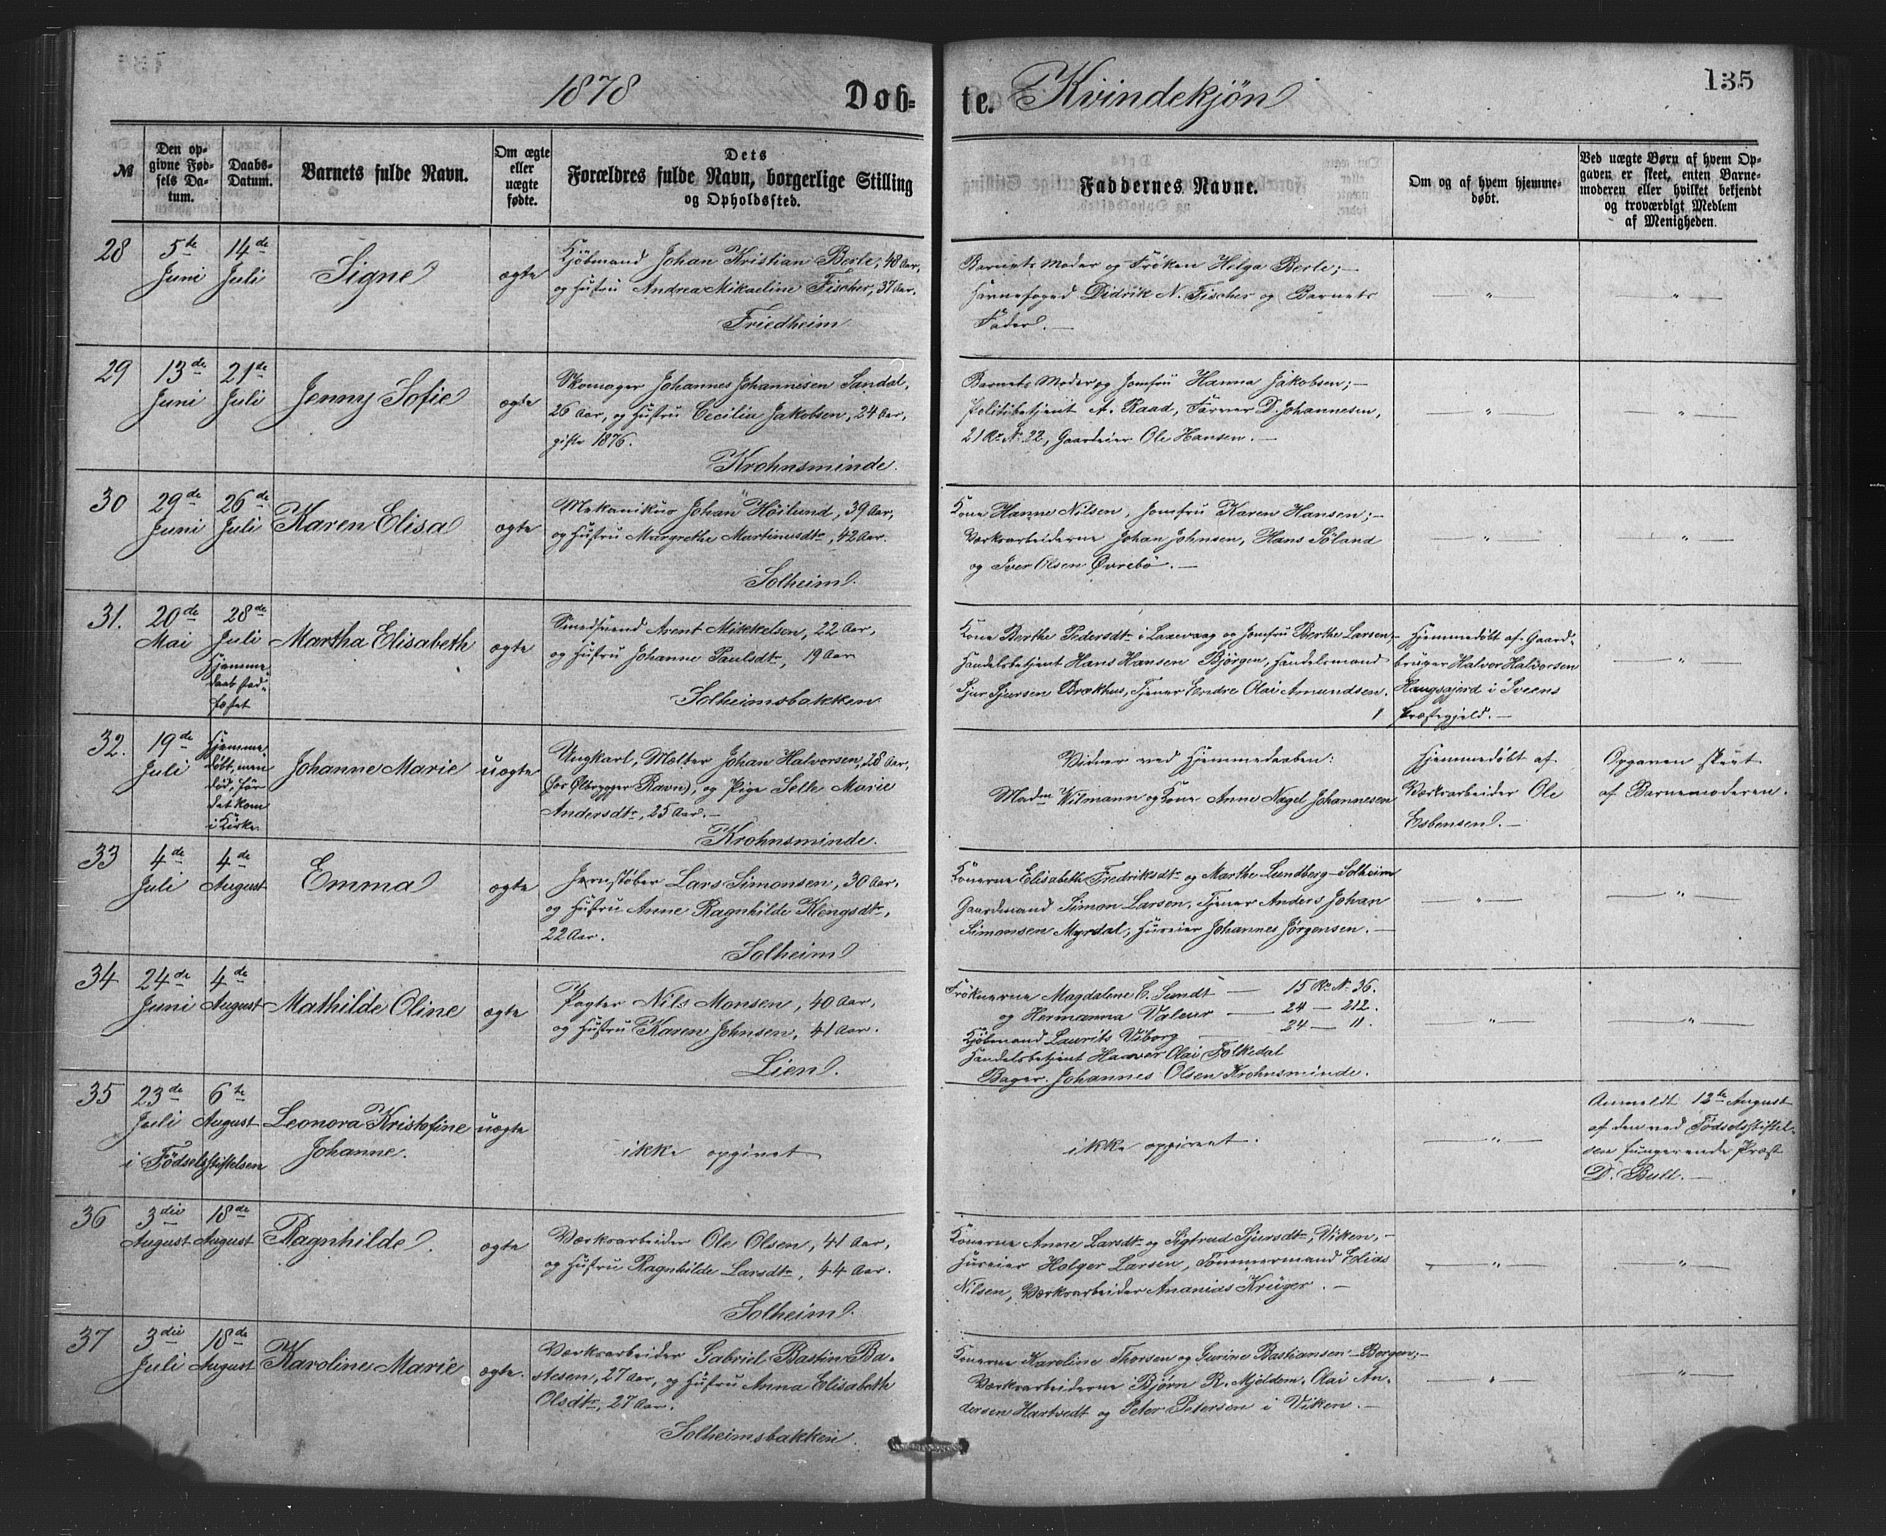 1878 Døb-
te. Kvindekjøn 135
№
Den op-
givne Fød-
sels Da-
tum.
Daabs-
Datum.
Barnets fulde Navn.
Om ægte
eller
uægte
fødte.
Dets
Forældres fulde Navn, borgerlige Stilling
og Opholdssted.
Faddernes Navne.
Om og af hvem hjemme-
døbt.
Ved uægte Børn af hvem Op-
gaven er skeet, enten Barne-
moderen eller hvilket bekjendt
og troværdigt Medlem
af Menigheden.
28
5te
Juni
14de
Juli
Signe
ægte
Kjøbmand Johan Kristian Berle, 48 Aar,
og Hustru Andrea Mikaeline Fischer, 37 Aar.
Friedheim
Barnets Moder og Frøken Helga Berle; —
Havnefoged Didrik N. Fischer og Barnets
Fader. —
— " —
— " —
29
13de
Juni
21de
Juli
Jenny Sofie
ægte
Skomager Johannes Johannesen Sandal,
26 Aar, og Hustru Cecilia Jakobsen, 24 Aar,
gifte 1876.
Krohnsminde.
Barnets Moder og Jomfru Hanna Jakobsen; —
Politibetjent A. Raad, Farver D. Johannesen,
21 Ro. N. 22, Gaardeier Ole Hansen. —
— " —
— " —
30
29de
Juni
26de
Juli
Karen Elisa
ægte
Mekanikus Johan Höilund, 39 Aar,
og Hustru Margrethe Martinusdtr, 42 Aar.
Solheim.
Kone Hanne Nilsen, Jomfru Karen Hansen; —
Værksarbeiderne Johan Johnsen, Hans Söland
og Iver Olsen Øvrebö. —
— " —
— " —
31.
20de
Mai
28de
Juli
Hjemme-
daab stad-
fæstet
Martha Elisabeth
ægte
Smedsvend Arent Mikkelsen, 22 Aar,
og Hustru Johanne Paulsdtr, 19 Aar
Solheimsbakken
Kone Berthe Pedersdtr i Laxevaag og Jomfru Berthe Larsen. —
Handelsbetjent Hans Hansen Björgen, Handelsmand
Sjur Sjursen Brækhus, Tjener Endre Olai Amundsen.
Hjemmedøbt af Gaard-
bruger Halvor Halvorsen
Haugsgjerd i Sveens
Præstegjeld. —
— " —
32.
19de
Juli
Hjemme-
døbt, men
död, før
det kom
i Kirke.
Johanne Marie
uægte
Ungkarl, Melter Johan Halvorsen, 28 Aar,
(hos Ølbrygger Ravn), og Pige Selle Marie
Andersdtr, 25 Aar. —
Krohnsminde.
Vidner ved Hjemmedaaben:
Madm Wilmann og Kone Anne Nagel Johannesen
Hjemmedøbt af
Værksarbeider Ole
Esbensen. —
Opgaven skeet
af Barnemoderen.
33
4de
Juli
4de
August
Emma
ægte
Jernstøber Lars Simonsen, 30 Aar,
og Hustru Anne Ragnhilde Klengsdtr,
22 Aar.
Solheim
Konerne Elisabeth Fredriksdtr og Marthe Lundberg Solheim
Gaardmand Simon Larsen, Tjener Anders Johan
Simonsen Myrdal, Huseier Johannes Jörgensen. —
— " —
— " —
34
24de
Juni
4de
August
Mathilde Oline
ægte
Pagter Nils Monsen, 40 Aar,
og Hustru Karen Johnsen, 41 Aar.
Lien.
Frøknerne Magdalene C. Sundt — 15 Ro. N. 36.
og Hermanna Valeur — 24 — 212.
Kjøbmand Laurits Viborg — 24 — 11.
Handelsbetjent Haaver Olai Folkedal
Bager Johannes Olsen Krohnsminde.
— " —
— " —
35
23de
Juli
6te
August
i Fødselsstiftelsen
Leonora Kristofine
Johanne.
uægte
ikke opgivet
ikke opgivet.
— " —
Anmeldt 13de August
af den ved Fødselsstiftel-
sen fungerende Præst
D. Bull. —
36
3die
August
18de
August
Ragnhilde.
ægte
Værksarbeider Ole Olsen, 41 Aar,
og Hustru Ragnhilde Larsdtr, 44 Aar.
Solheim.
Konerne Anne Larsdtr og Sigtrud Sjursdtr, Viken, —
Huseier Holger Larsen, Tömmermand Elias
Nilsen, Værksarbeider Ananias Krüger. —
— " —
— " —
37
3die
Juli
18de
August
Karoline Marie
ægte.
Værksarbeider Gabriel Bastin Ba-
stesen, 27 Aar, og Hustru Anna Elisabeth
Olsdtr, 27 Aar.
Solheimsbakken.
Konerne Karoline Thorsen og Surine Bastiansen Bergen; —
Værksarbeiderne Bjørn R. Mjeldem, Olai An-
dersen Hartvedt og Peter Petersen i Viken. —
— " —
— " —